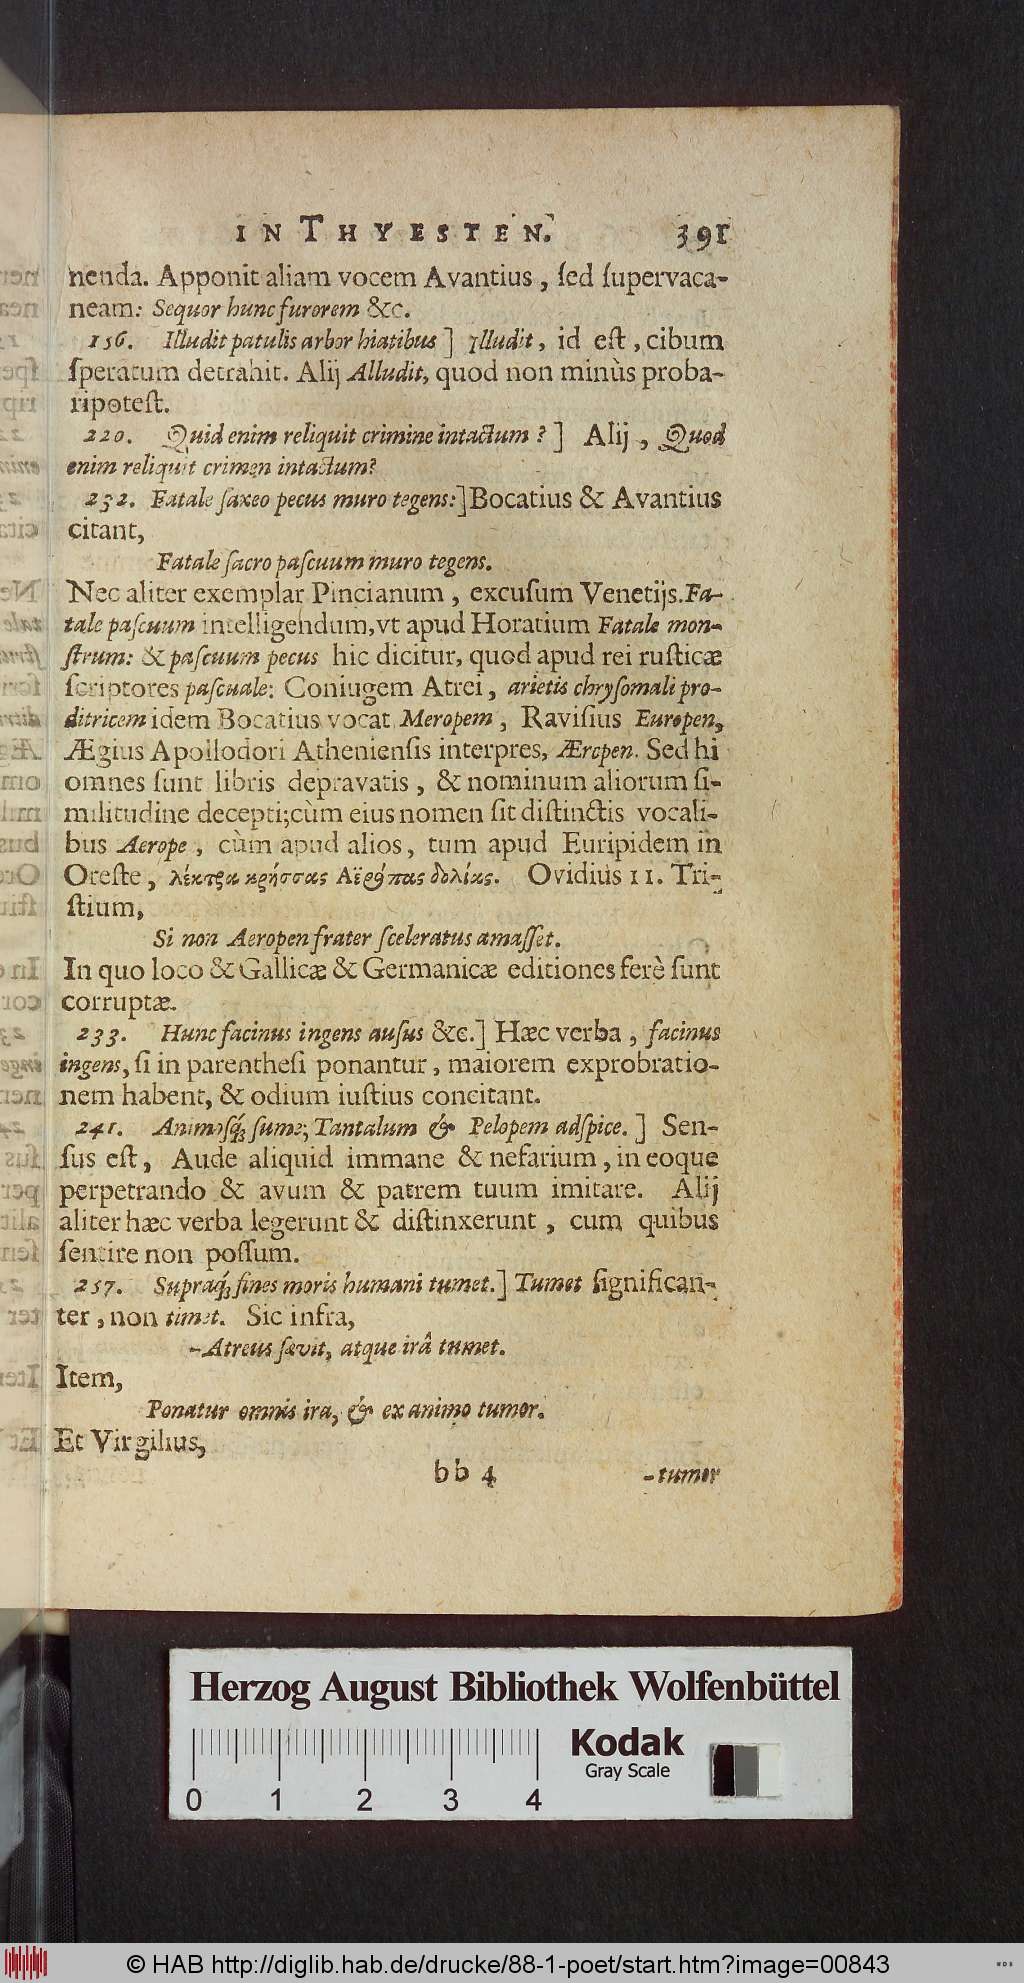 IN THYESTEN. 391
nenda. Apponit aliam vocem Avantius, ſed ſupervaca-
neam: Sequor hunc furorem &c.
156. Illudit patulis arbor hiatibus] Illudit, id eſt, cibum
ſperatum detrahit. Alij Alludit, quod non minùs proba-
ri poteſt.
220. Quid enim reliquit crimine intactum?] Alij, Quod
enim reliquit crimen intactum?
232. Fatale ſaxeo pecus muro tegens:] Bocatius & Avantius
citant,
Fatale ſacro paſcuum muro tegens.
Nec aliter exemplar Pincianum, excuſum Venetijs. Fa-
tale paſcuum intelligendum, vt apud Horatium Fatale mon-
ſtrum: & paſcuum pecus hic dicitur, quod apud rei ruſticæ
ſcriptores paſcuale: Coniugem Atrei, arietis chryſomali pro-
ditricem idem Bocatius vocat Meropem, Raviſius Europen,
Ægius Apollodori Athenienſis interpres, Æropen. Sed hi
omnes ſunt libris depravatis, & nominum aliorum ſi-
militudine decepti; cùm eius nomen ſit diſtinctis vocali-
bus Aerope, cùm apud alios, tum apud Euripidem in
Oreſte, λέκτρα κρήσσας Αἐρόπας δολίας. Ovidius 11. Tri-
ſtium,
Si non Aeropen frater ſceleratus amaſſet.
In quo loco & Gallicæ & Germanicæ editiones ferè ſunt
corruptæ.
233. Hunc facinus ingens auſus &c.] Hæc verba, facinus
ingens, ſi in parentheſi ponantur, maiorem exprobratio-
nem habent, & odium iuſtius concitant.
241. Animoſq́; ſume; Tantalum & Pelopem adſpice.] Sen-
ſus eſt, Aude aliquid immane & nefarium, in eoque
perpetrando & avum & patrem tuum imitare. Alij
aliter hæc verba legerunt & diſtinxerunt, cum quibus
ſentire non poſſum.
257. Supraq́; fines moris humani tumet.] Tumet ſignifican-
ter, non timet. Sic infra,
-Atreus ſævit, atque irâ tumet.
Item,
Ponatur omnis ira, & ex animo tumor.
Et Virgilius,
bb 4 -tumor
Herzog August Bibliothek Wolfenbüttel
Kodak
Gray Scale
0 1 2 3 4
© HAB http://diglib.hab.de/drucke/88-1-poet/start.htm?image=00843